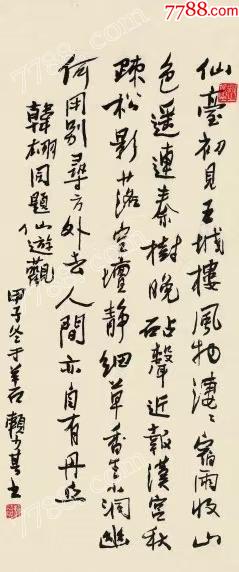 7788.com
仙臺初見五城樓風物淒〻宿雨收山
色遥連秦樹晚砧聲近報漢宮秋
疎松影落空壇靜細草香生小洞幽
何用別尋方外去人間亦自有丹丘
韓翃同題仙遊觀
甲子冬于羊石賴少其书